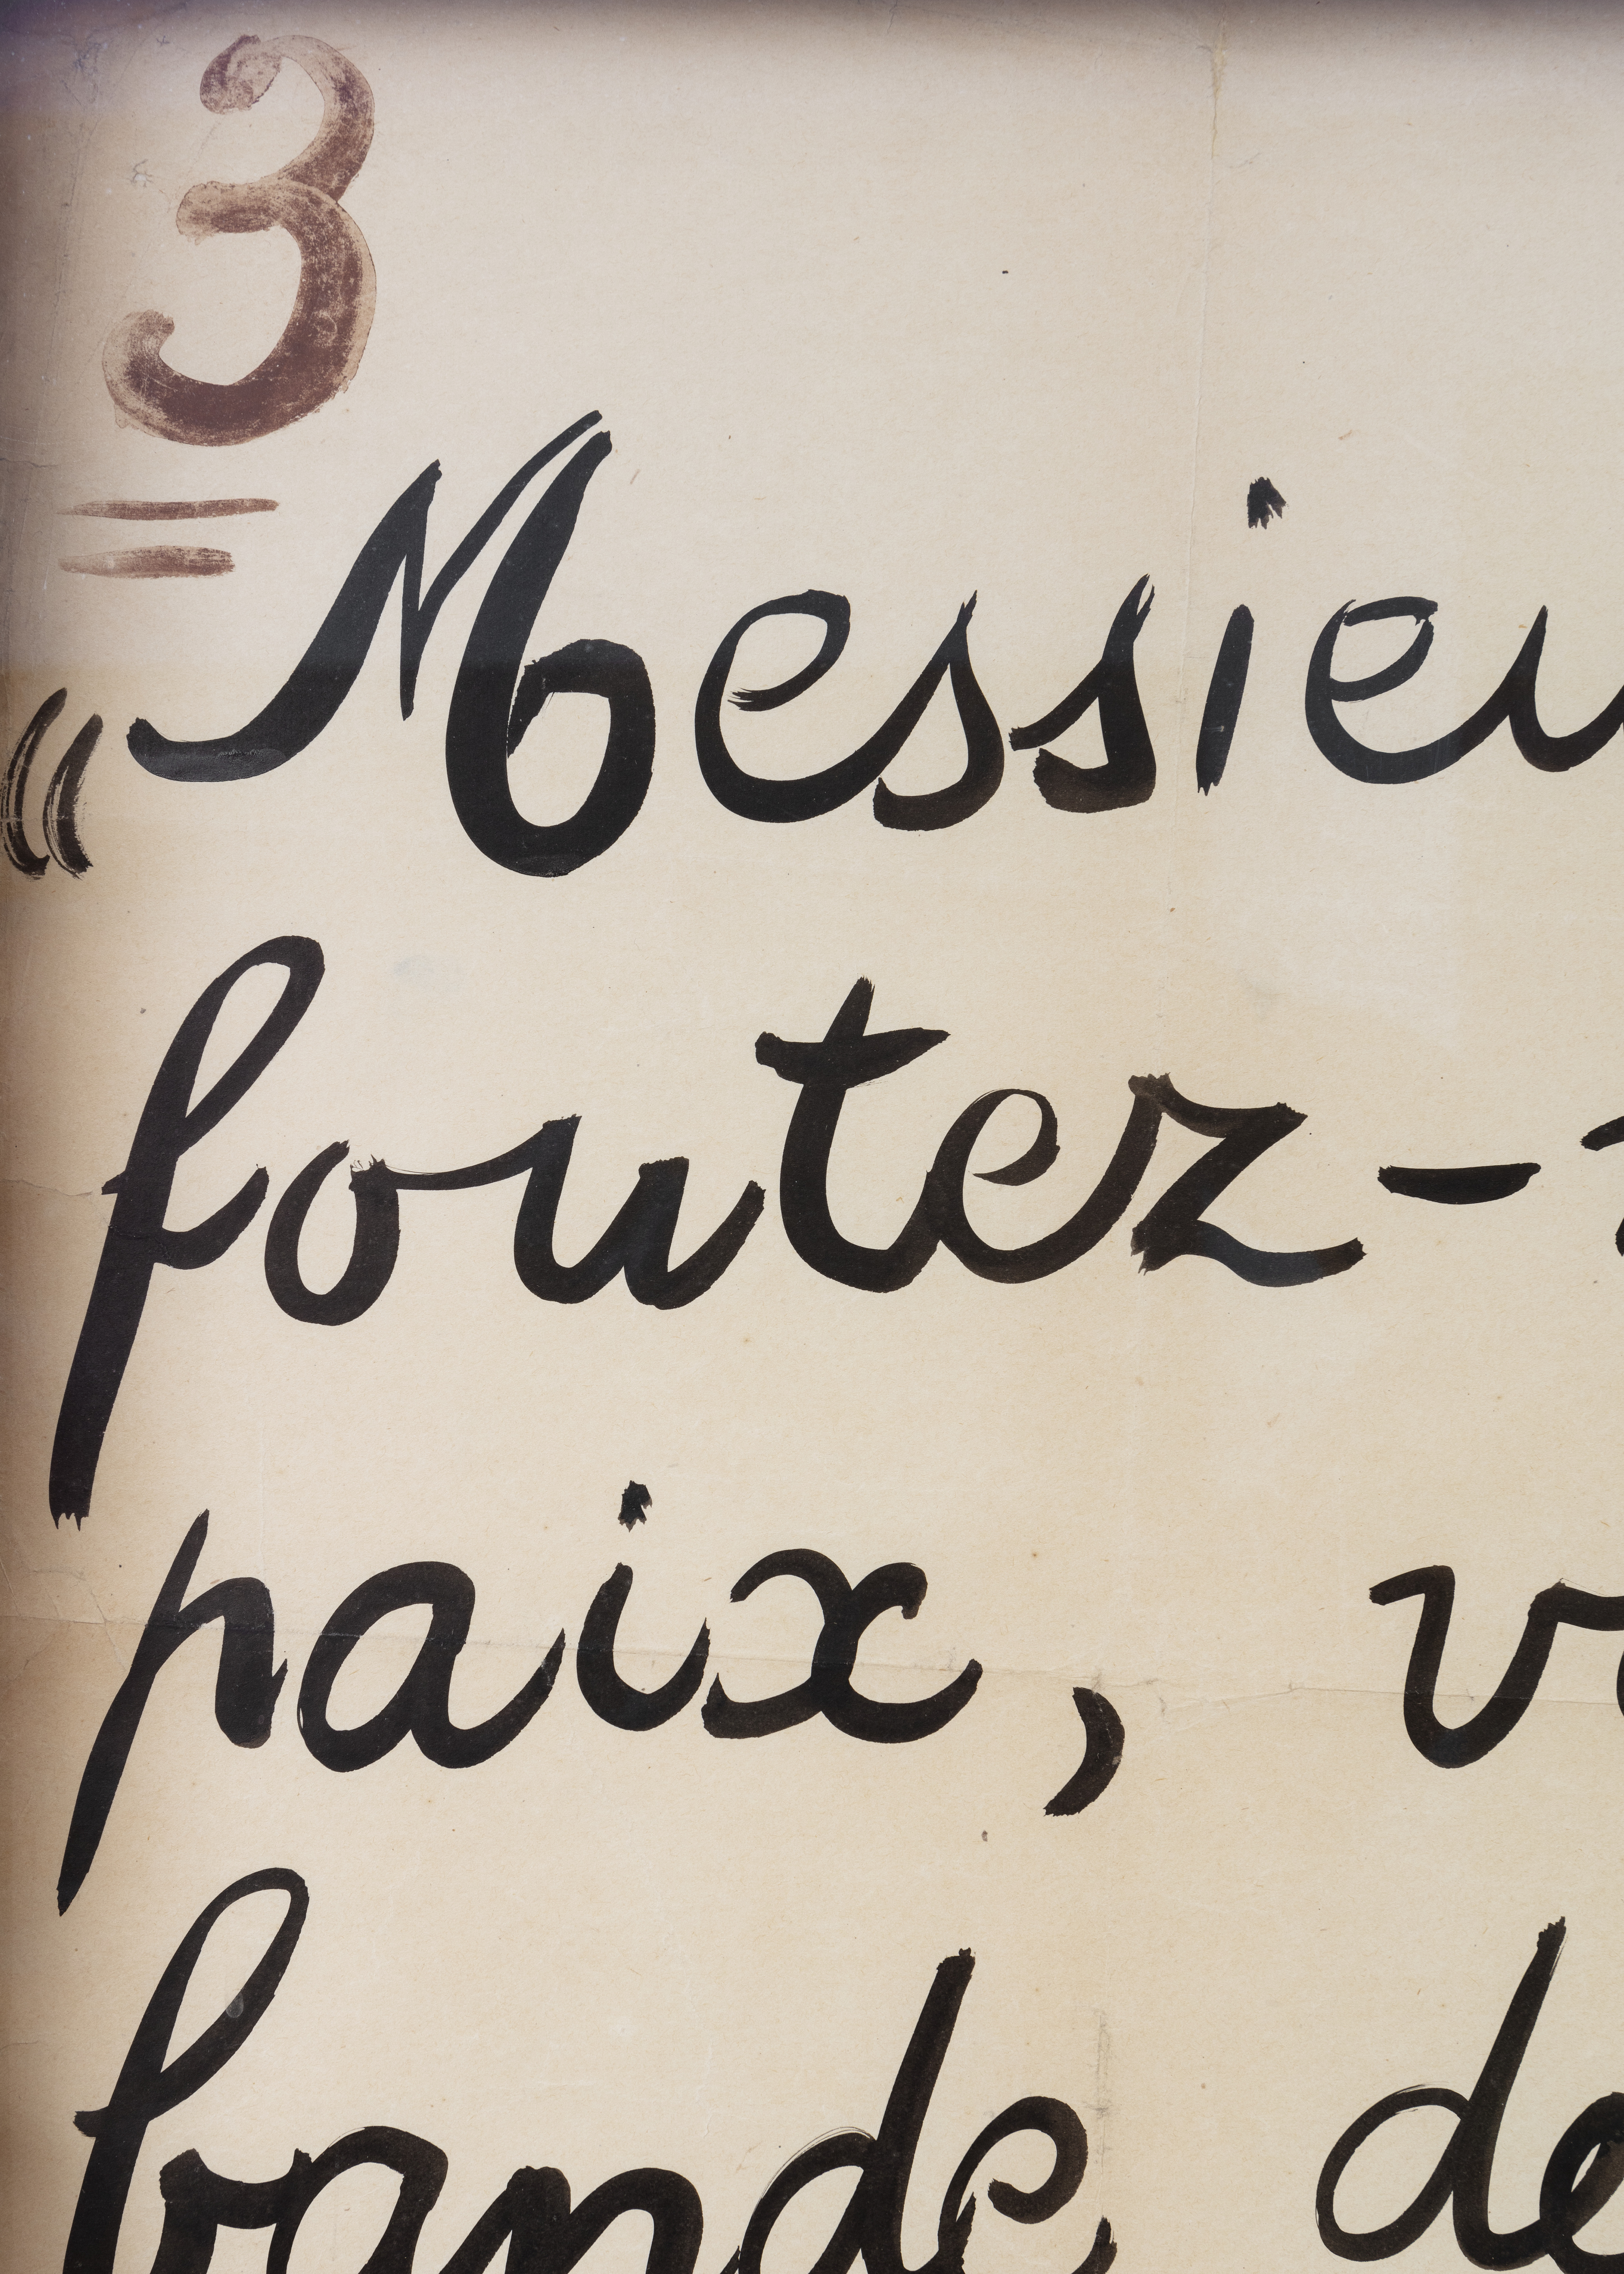 3
« Messieu
foutez-
paix, v
bande de